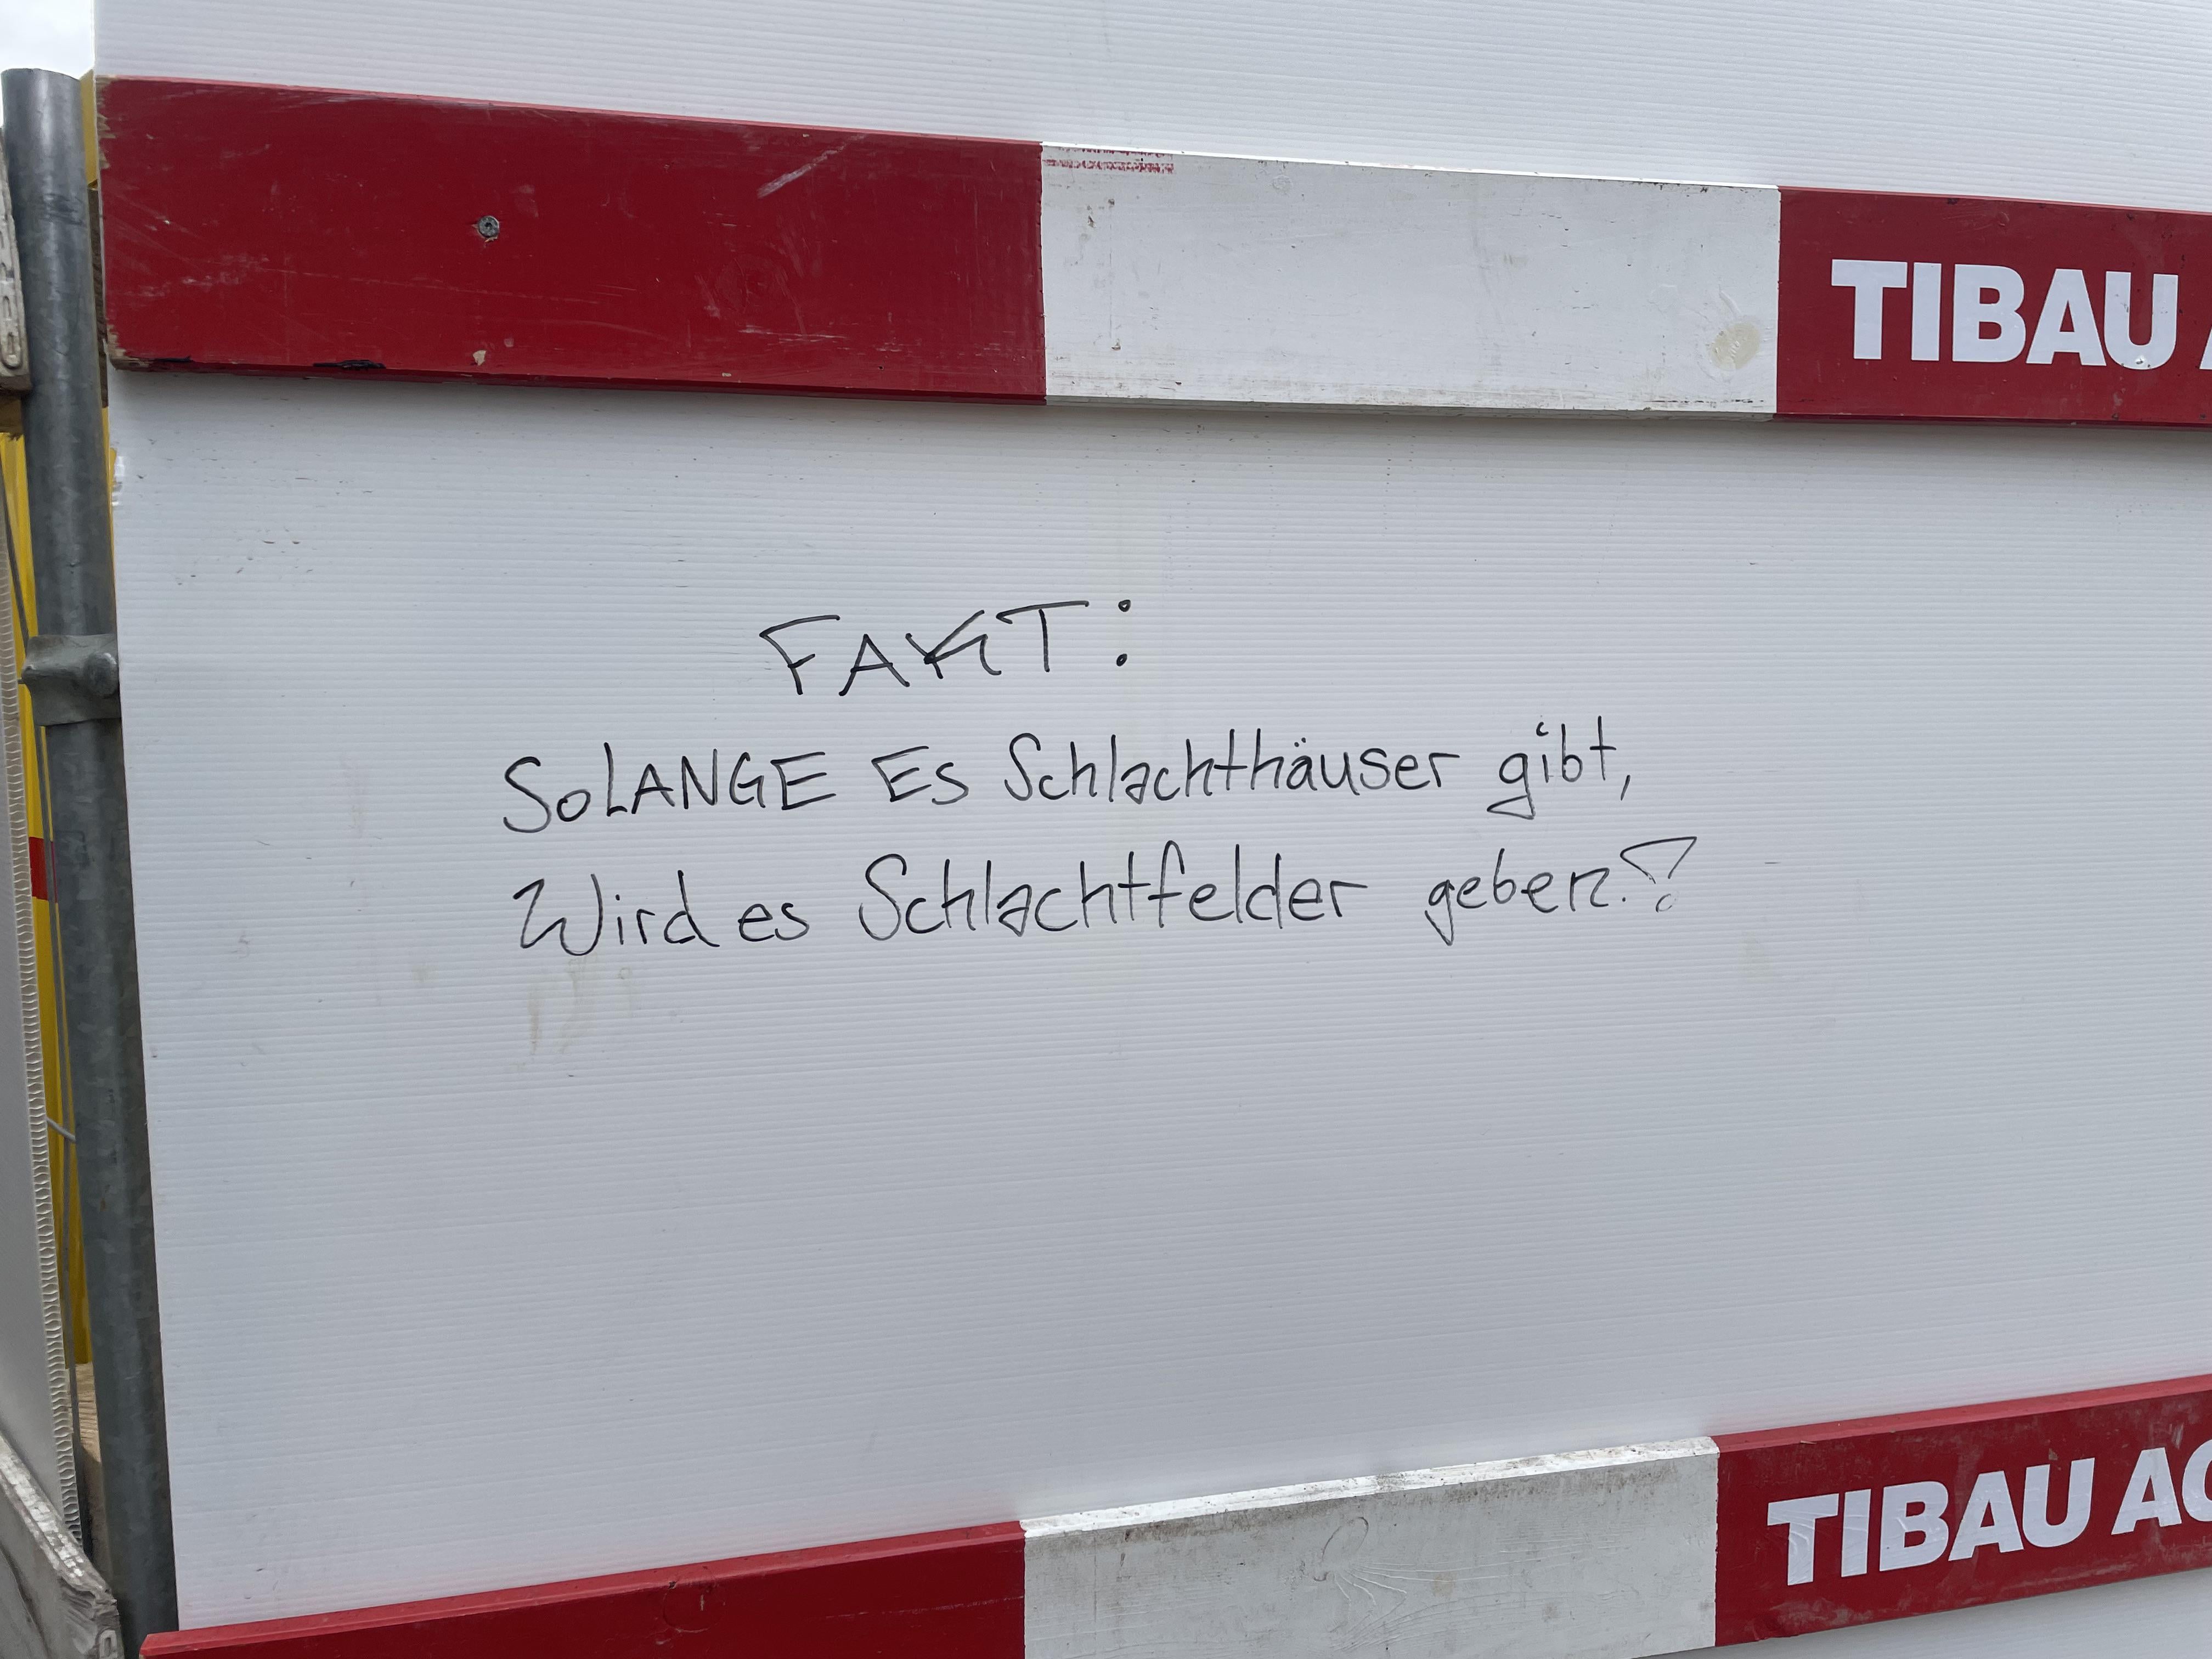 TIBAU
FAKT:
SoLANGE Es Schlachthäuser gibt,
Wird es Schlachtfelder geben.?
TIBAU AG